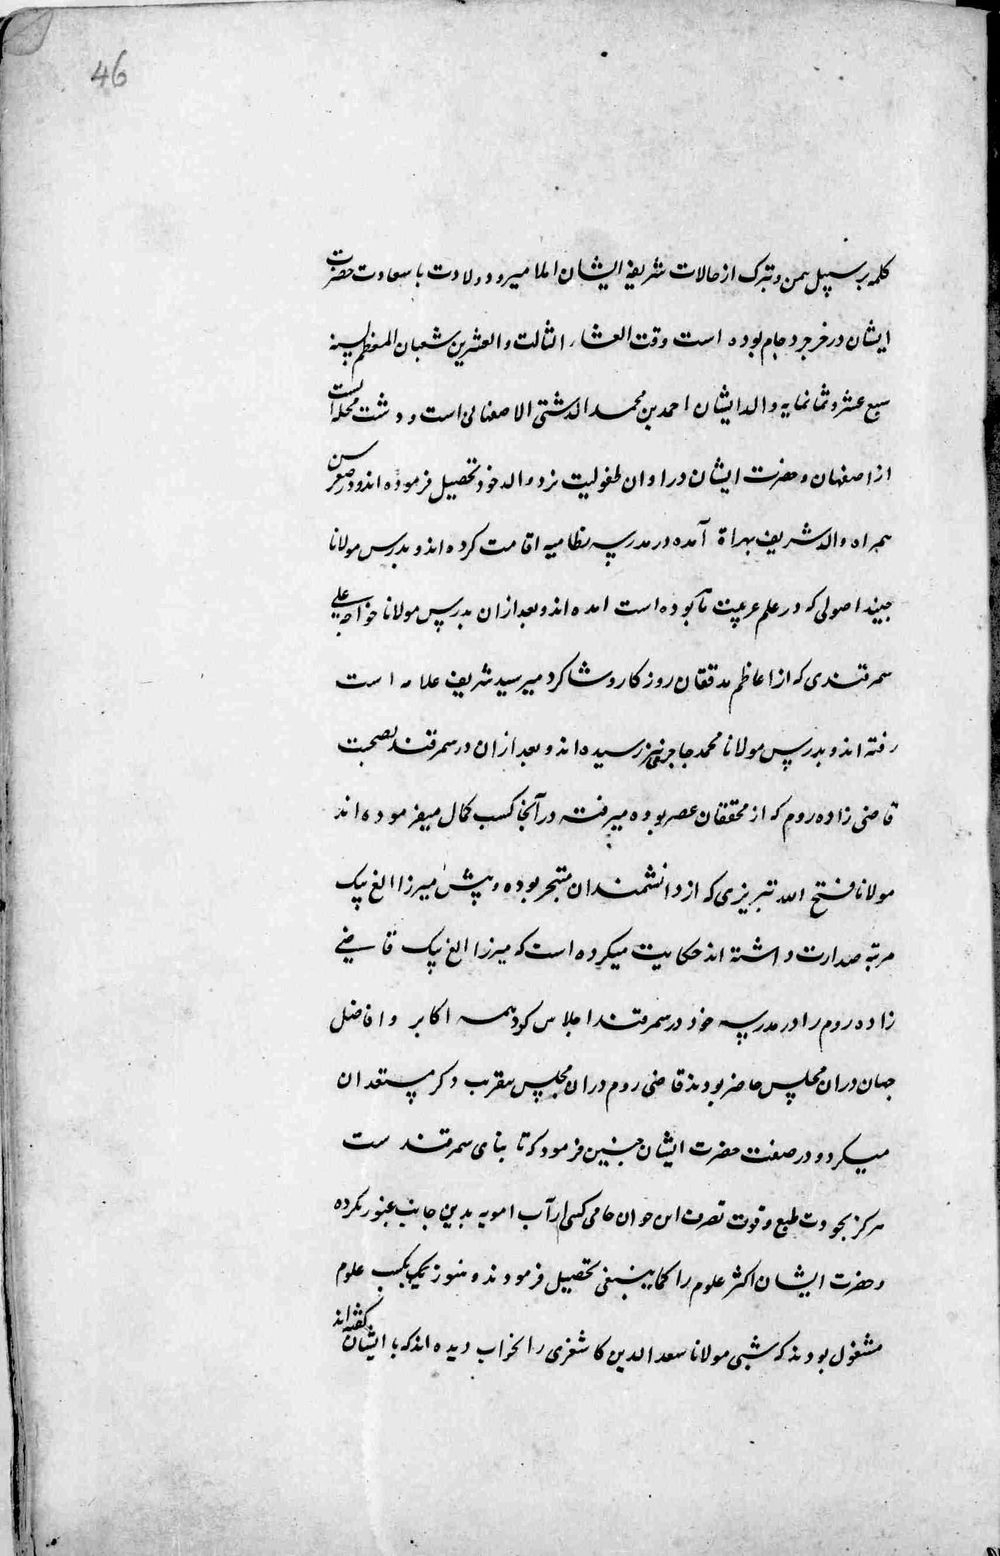 46
کلمه بر سبیل یمن و تبرک از حالات شریفۀ ایشان املا میرود ولادت با سعادت حضرت
ایشان در خرجرد جام بوده است وقت العشاء الثالث والعشرین شعبان المعظم لسنه
سبع عشر و ثمانمایه والد ایشان احمد بن محمد الدشتی الاصفهانی است و دشت محله ایست
از اصفهان و حضرت ایشان در اوان طفولیت نزد والد خود تحصیل فرموده اند و در صغر سن
همراه والد شریف بهراة آمده در مدرسه نظامیه اقامت کرده اند و بدرس مولانا
جنید اصولی که در علم عربیت ماهر بوده است امده اند و بعد ازان بدرس مولانا خواجه علی
سمرقندی که از اعاظم مدققان روزکار و شاکرد میر سید شریف علامه است
رفته اند و بدرس مولانا محمد جاجرمی نیز رسیده اند و بعد ازان در سمرقند بصحبت
قاضی زاده روم که از محققان عصر بوده میرفته در آنجا کسب کمال میفرموده اند
مولانا فتح الله تبریزی که از دانشمندان متبحر بوده و پیش میرزا الغ بیک
مرتبه صدارت داشته اند حکایت میکرده است که میرزا الغ بیک قاضی
زاده روم را در مدرسه خود در سمرقند اجلاس کرد همه اکابر و افاضل
جهان دران مجلس حاضر بودند قاضی روم دران مجلس بتقریب ذکر مستعدان
میکرد و در صفت حضرت ایشان چنین فرمود که تا بنای سمرقند ست
هرکز بجودت طبع و قوت تصرف این جوان جامی کسی از آب امویه بدین جانب عبور نکرده
و حضرت ایشان اکثر علوم را کما ینبغی تحصیل فرمودند و هنوز بکسب علوم
مشغول بودند که شبی مولانا سعد الدین کاشغری را بخواب دیده اند که با ایشان گفته اند